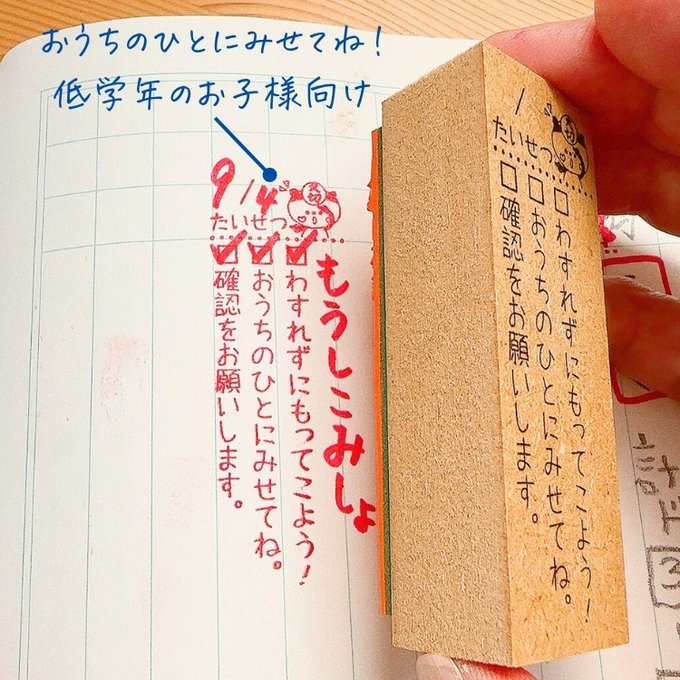 おうちのひとにみせてね!
低学年のお子様向け
9/4
たいせつ
もうしこみしょ
わすれずにもってこよう!
おうちのひとにみせてね。
確認をお願いします。
/
たいせつ
わすれずにもってこよう!
おうちのひとにみせてね。
確認をお願いします。
計ド
③